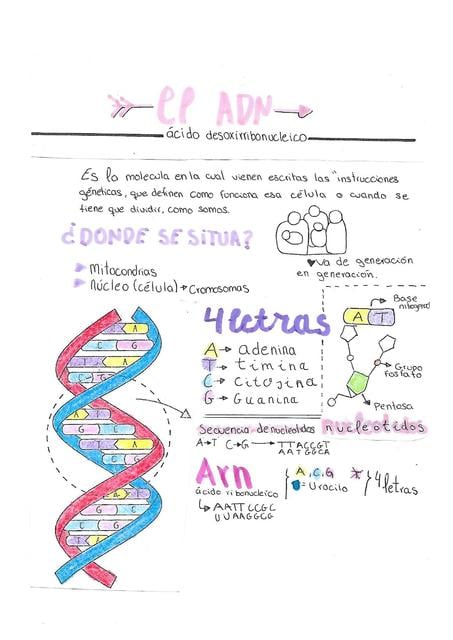 el ADN
ácido desoxirribonucleico
Es la molecula en la cual vienen escritas las "instrucciones
géneticas, que definen como funciona esa célula o cuando se
tiene que dividir, como somos.
¿DONDE SE SITUA?
Mitocondrias
Núcleo (célula) → Cromosomas
va de generación
en generación.
4 letras
A → adenina
T → timina
C → citosina
G → Guanina
Base
A T
Grupo
fosfato
Pentosa
nucleotidos
Secuencia de nucleotidos
A→T C→G → TTACCGT
AATGGCA
Arn
ácido ribonucleico
AATTCCGC
UUAAGGCG
A, C, G
= Uracilo
4 letras
A
C G
T A
C G
A T
G C
T A
C G
A T
G C
C G